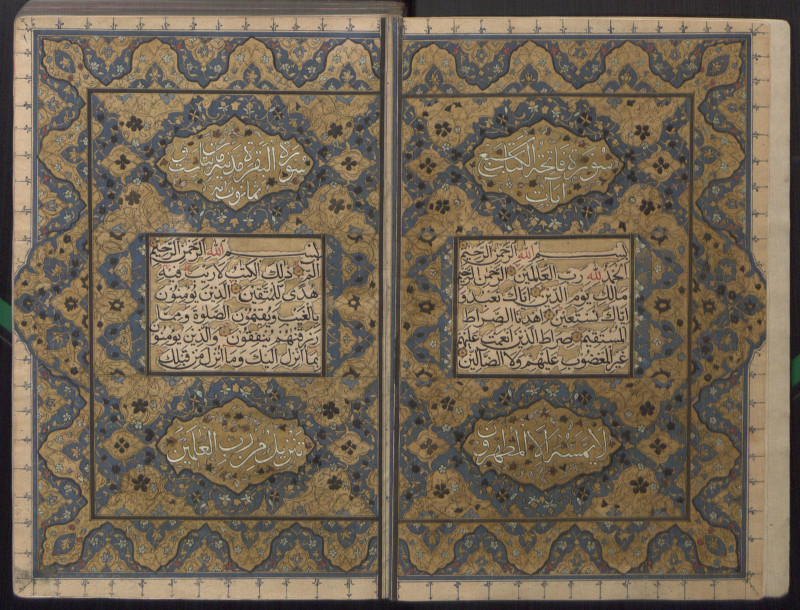 سورة فاتحة الكتاب سبع
آيات
بسم الله الرحمن الرحيم
الحمد لله رب العلمين الرحمن الرحيم
مالك يوم الدين اياك نعبد و
اياك نستعين اهدنا الصراط
المستقيم صراط الذين انعمت عليهم
غير المغضوب عليهم ولا الضالين
لا يمسه الا المطهرون
سورة البقرة مائتان وست
ثمانون آية
بسم الله الرحمن الرحيم
الم ذلك الكتب لا ريب فيه
هدى للمتقين الذين يؤمنون
بالغيب ويقيمون الصلوة ومما
رزقنهم ينفقون والذين يؤمنون
بما انزل اليك وما انزل من قبلك
تنزيل من رب العلمين